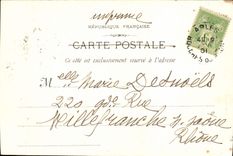 imprimé
RÉPUBLIQUE FRANÇAISE
CARTE POSTALE
Ce côté est exclusivement réservé à l'adresse
Melle Marie Desnoëls
220 gde Rue
Villefranche s. Saône
Rhône